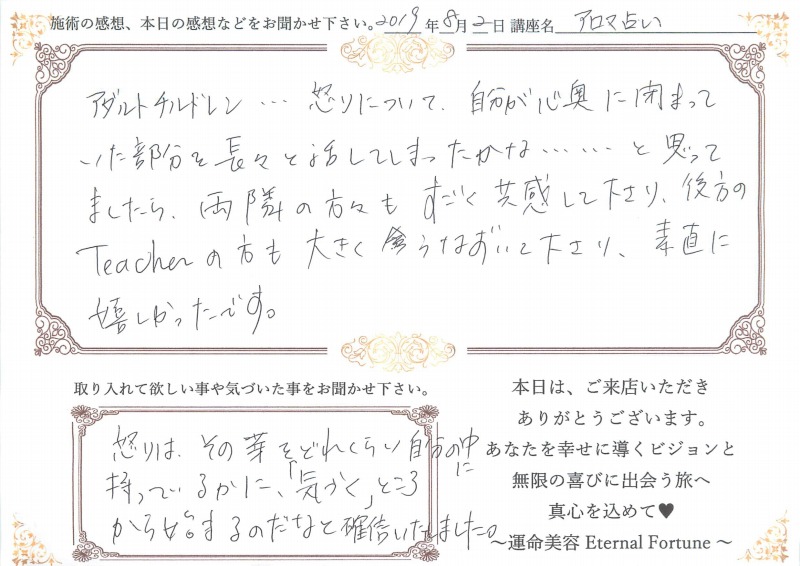 施術の感想、本日の感想などをお聞かせ下さい。2019年8月2日 講座名 アロマ占い
アダルトチルドレン… 怒りについて、自分が心奥に閉まって
いた部分を長々と話してしまったかな……と思って
ましたら、両隣の方々もすごく共感して下さり、後方の
Teacherの方も大きくうなずいて下さり、素直に
嬉しかったです。
取り入れて欲しい事や気づいた事をお聞かせ下さい。
怒りは、その芽をどれくらい自分の中に
持っているかに、「気づく」ところ
から始まるのだなと確信いたしました。
本日は、ご来店いただき
ありがとうございます。
あなたを幸せに導くビジョンと
無限の喜びに出会う旅へ
真心を込めて♥
～運命美容 Eternal Fortune～